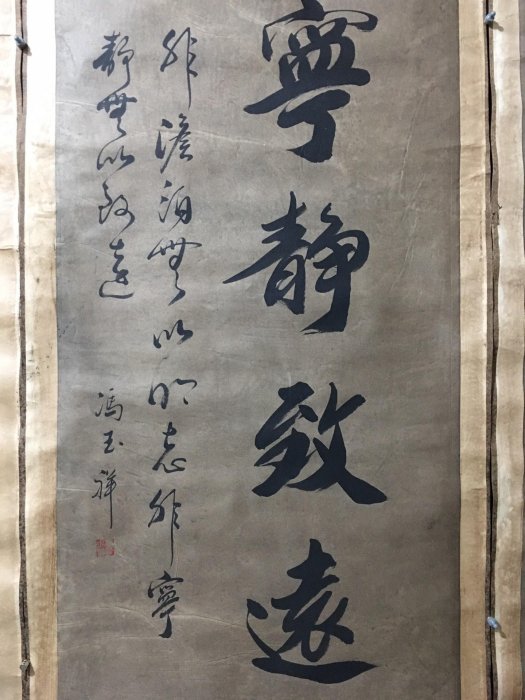 寧靜致遠
非澹泊無以明志非寧
靜無以致遠
馮玉祥